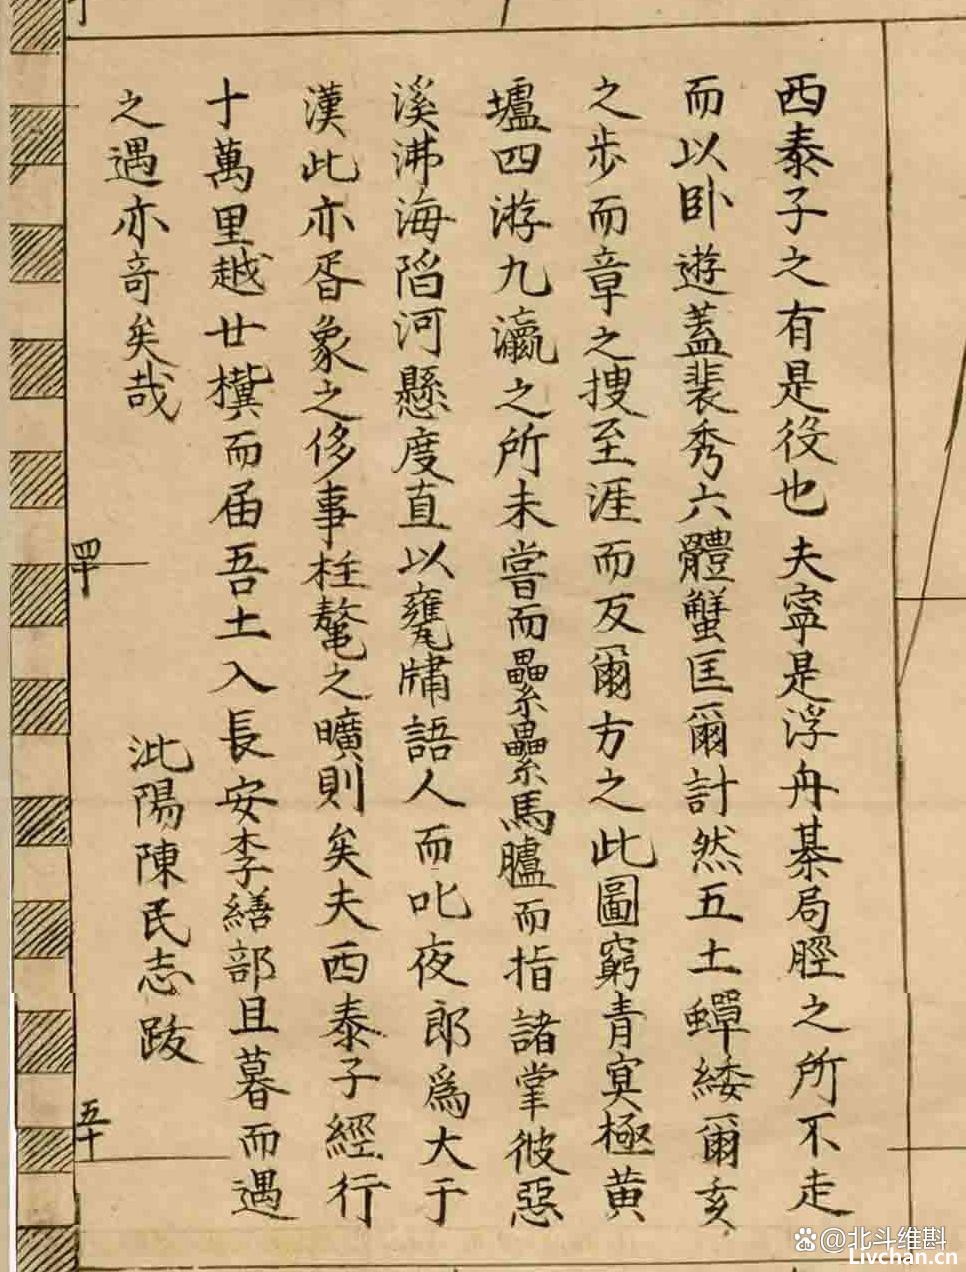 西泰子之有是役也夫寧是浮舟棊局脛之所不走
而以卧遊蓋裴秀六體蟹匡爾計然五土蟬緌爾亥
之步而章之搜至涯而反爾方之此圖窮青冥極黄
壚四游九瀛之所未嘗而纍纍馬臚而指諸掌彼惡
溪沸海陷河懸度直以甕牗語人而叱夜郎爲大于
漢此亦胥象之侈事柱鼇之曠則矣夫西泰子經行
十萬里越廿禩而届吾土入長安李繕部且暮而遇
之遇亦竒矣哉
沘陽陳民志跋
四十
五十
@北斗維斟
Livchan.cn